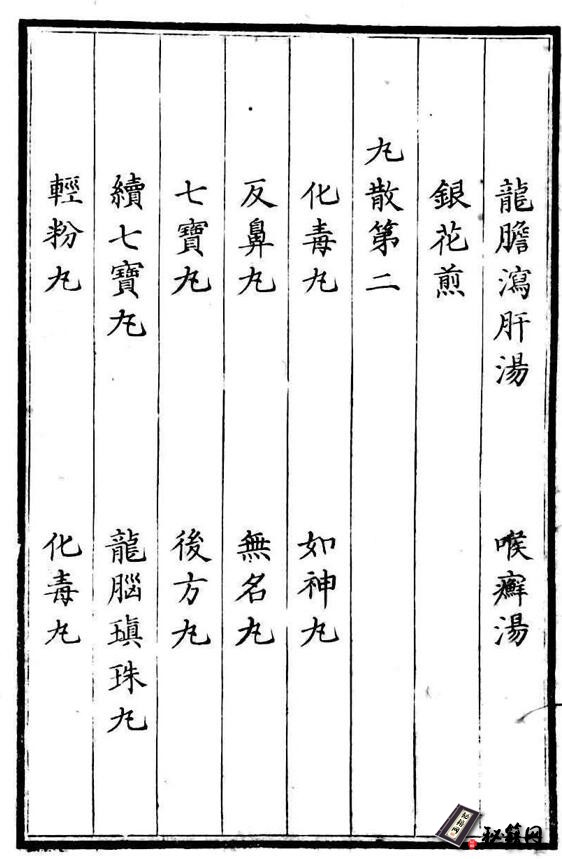 龍膽瀉肝湯　喉癬湯
銀花煎
丸散第二
化毒丸　如神丸
反鼻丸　無名丸
七寶丸　後方丸
續七寶丸　龍腦瑱珠丸
輕粉丸　化毒丸
秘籍网